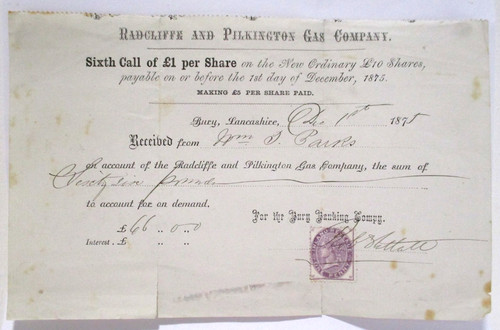 RADCLIFFE AND PILKINGTON GAS COMPANY.
Sixth Call of £1 per Share on the New Ordinary £10 Shares,
payable on or before the 1st day of December, 1875.
MAKING £5 PER SHARE PAID.
Bury, Lancashire, Dec 1st 1875
Received from Wm S.
on account of the Radcliffe and Pilkington Gas Company, the sum of
Sixty six pounds
to account for on demand.
£66 .. 0 .. 0
For the Bury Banking Compy.
Interest . £ .. ..
PENNY